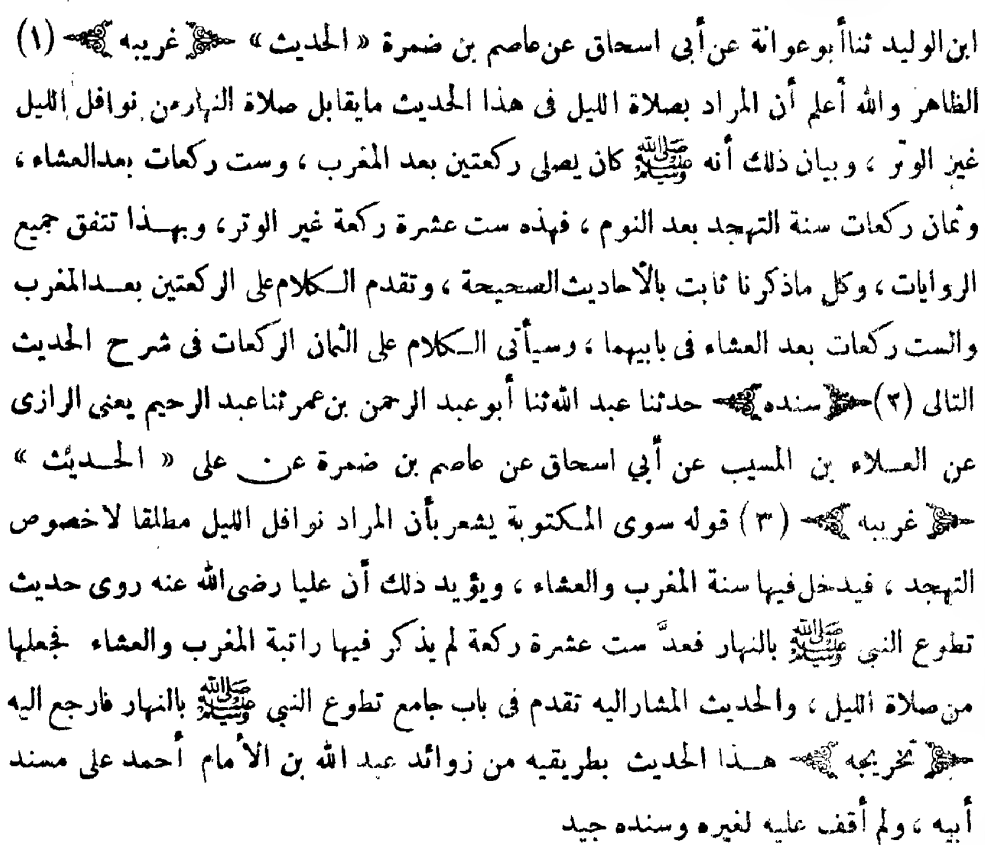 ابن الوليد ثنا أبو عوانة عن أبى اسحاق عن عاصم بن ضمرة « الحديث » ﴿ غريبه ﴾ (١)
الظاهر والله أعلم أن المراد بصلاة الليل فى هذا الحديث مايقابل صلاة النهار من نوافل الليل
غير الوتر ، وبيان ذلك أنه ﷺ كان يصلى ركعتين بعد المغرب ، وست ركعات بعد العشاء ،
وثمان ركعات سنة التهجد بعد النوم ، فهذه ست عشرة ركعة غير الوتر ، وبهـذا تتفق جميع
الروايات ، وكل ماذكرنا ثابت بالأحاديث الصحيحة ، وتقدم الـكلام على الركعتين بعـد المغرب
والست ركعات بعد العشاء فى بابيهما ، وسيأتى الـكلام على الثمان الركعات فى شرح الحديث
التالى (٢) ﴿ سنده ﴾ حدثنا عبد الله ثنا أبو عبد الرحمن بن عمر ثنا عبد الرحيم يعنى الرازى
عن العـلاء بن المسيب عن أبي اسحاق عن عاصم بن ضمرة عن على « الحـديث »
﴿ غريبه ﴾ (٣) قوله سوى المـكتوبة يشعر بأن المراد نوافل الليل مطلقا لا خصوص
التهجد ، فيدخل فيها سنة المغرب والعشاء ، ويؤيد ذلك أن عليا رضى الله عنه روى حديث
تطوع النبى ﷺ بالنهار فعدَّ ست عشرة ركعة لم يذكر فيها راتبة المغرب والعشاء فجعلها
من صلاة الليل ، والحديث المشار اليه تقدم فى باب جامع تطوع النبي ﷺ بالنهار فارجع اليه
﴿ تخريجه ﴾ هـذا الحديث بطريقيه من زوائد عبد الله بن الأمام أحمد على مسند
أبيه ، ولم أقف عليه لغيره وسنده جيد